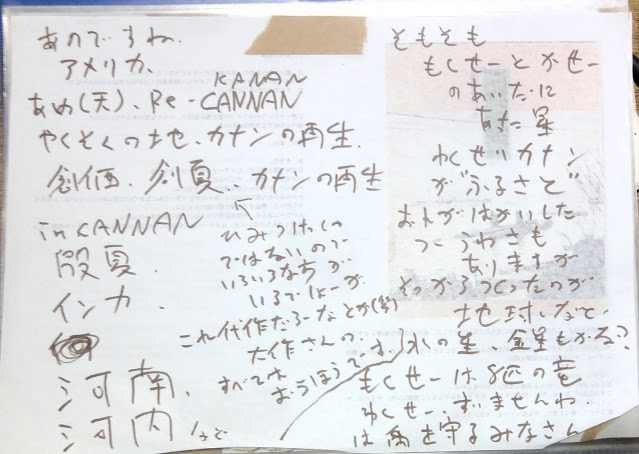 あのですね、
アメリカ、
KANAN
あめ(天)、Re-CANNAN
やくそくの土地、カナンの再生、
創価、創夏、カナンの再生
in CANNAN
殷夏、
インカ、
河南、
河内、など
ひみつけっしゃ
ではないので
いろいろなちが
いろでしょーが
これ代作だろーなとか(笑)
大作さんの、
すべては
おうほうで、
そもそも
もくせーとかせー
のあいだに
あった星
わくせいカナン
が"ふるさと"
おれがはかいした
っつーうわさも
ありますが
そっからつくったのが
地球、など、
氷の星、金星もかな?
もくせーは8匹の竜
わくせー、すいませんね、
は禹を守るみなさん